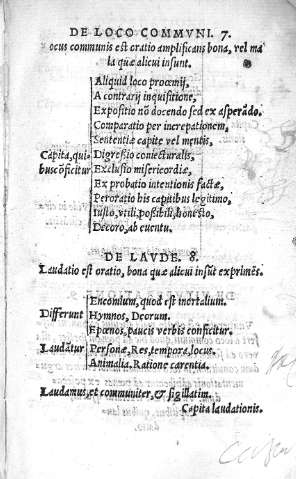 DE LOCO COMMVNI. 7.
ocus communis est oratio amplificans bona, vel ma
la quæ alicui insunt.
Aliquid loco proœmij,
A contrarij inquisitione,
Expositio nō docendo sed ex asperādo.
Comparatio per increpationem,
Sententiæ capite vel mentis,
Capita, qui- Digressio coniecturalis,
bus cōficitur Exclusio misericordiæ,
Ex probatio intentionis factæ,
Peroratio his capitibus legitimo,
Iusto, vtili, possibili, honesto,
Decoro, ab euentu.
DE LAVDE. 8.
Laudatio est oratio, bona quæ alicui insūt exprimēs.
Encomium, quod est mortalium.
Differunt Hymnos, Deorum.
Epœnos, paucis verbis conficitur.
Laudātur Personæ, Res, tempora, locus.
Animalia, Ratione carentia.
Laudamus, et communiter, & sigillatim.
Capita laudationis.